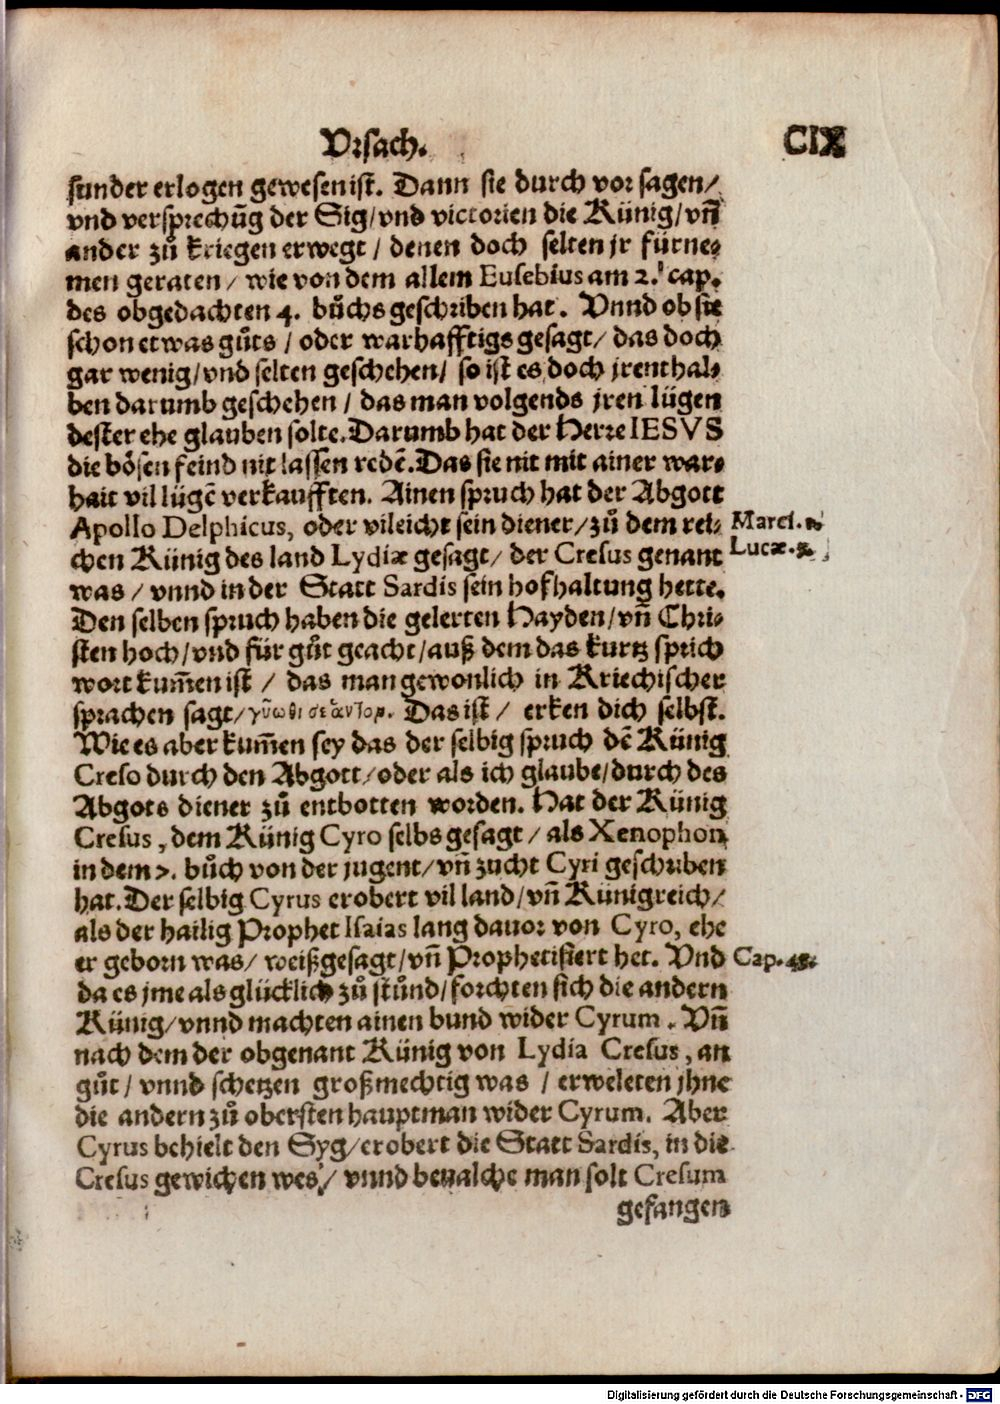 Vrsach. CIX
sunder erlogen gewesen ist. Dann sie durch vor sagen/
vnd versprechūg der Sig/vnd victorien die Künig/vn̄
ander zů kriegen erwegt / denen doch selten jr fürne-
men geraten / wie von dem allem Eusebius am 2. cap.
des obgedachten 4. bůchs geschriben hat. Vnnd ob sie
schon etwas gůts / oder warhafftigs gesagt/ das doch
gar wenig/vnd selten geschehen/ so ist es doch jrenthal-
ben darumb geschehen / das man volgends jren lügen
dester ehe glauben solte. Darumb hat der Herre IESVS
die bösen feind nit lassen redē. Das sie nit mit ainer war-
hait vil lügē verkaufften. Ainen spruch hat der Abgott
Apollo Delphicus, oder vileicht sein diener/zů dem rei- Marci.
chen Künig des land Lydiæ gesagt/ der Cresus genant Lucæ.
was / vnnd in der Statt Sardis sein hofhaltung hette.
Den selben spruch haben die gelerten Hayden/vn̄ Chri-
sten hoch/vnd für gůt geacht/auß dem das kurtz sprich
wort kum̄en ist / das man gewonlich in Kriechischer
sprachen sagt/ Das ist / erken dich selbst.
Wie es aber kum̄en sey das der selbig spruch dē Künig
Creso durch den Abgott/oder als ich glaube/durch des
Abgots diener zů entbotten worden. Hat der Künig
Cresus, dem Künig Cyro selbs gesagt / als Xenophon
in dem 7. bůch von der jugent/vn̄ zucht Cyri geschriben
hat. Der selbig Cyrus erobert vil land/vn̄ Künigreich/
als der hailig Prophet Isaias lang dauor von Cyro, ehe
er geborn was/ weißgesagt/vn̄ Prophetisiert het. Vnd Cap. 45.
da es jme als glücklich zů stůnd/forchten sich die andern
Künig/vnnd machten ainen bund wider Cyrum. Vn̄
nach dem der obgenant Künig von Lydia Cresus, an
gůt / vnnd schetzen großmechtig was / erweleten jhne
die andern zů obersten hauptman wider Cyrum. Aber
Cyrus behielt den Syg/erobert die Statt Sardis, in die
Cresus gewichen wes/ vnnd beualche man solt Cresum
gefangen
Digitalisierung gefördert durch die Deutsche Forschungsgemeinschaft - DFG